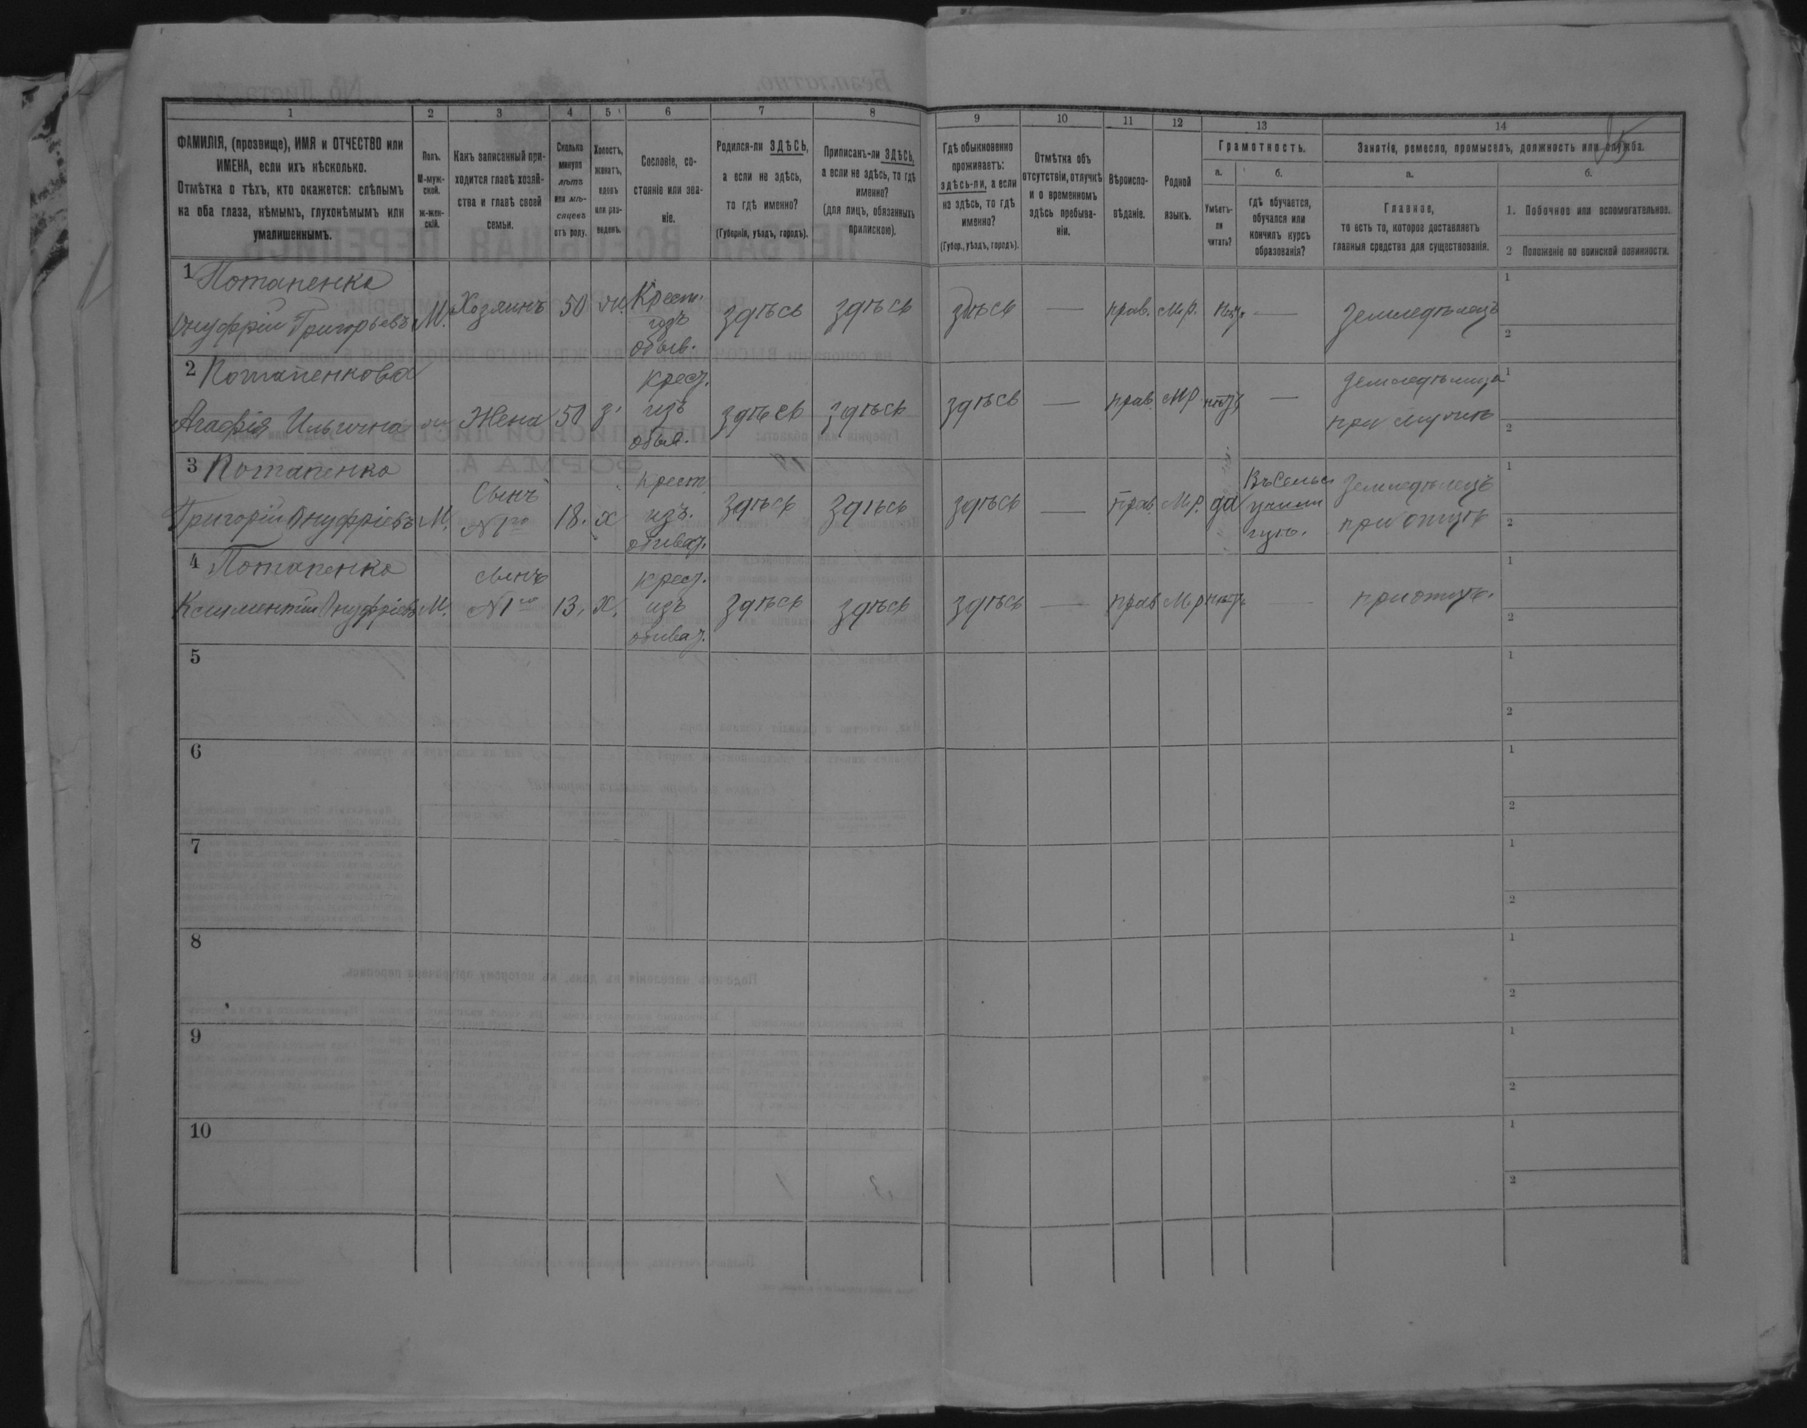 1 2 3 4 5 6 7 8 9 10 11 12 13 14
ФАМИЛІЯ, (прозвище), ИМЯ и ОТЧЕСТВО или
ИМЕНА, если ихъ нѣсколько.
Отмѣтка о тѣхъ, кто окажется: слѣпымъ
на оба глаза, нѣмымъ, глухонѣмымъ или
умалишеннымъ.
Полъ.
М-муж-
ской.
ж-жен-
скій.
Какъ записанный при-
ходится главѣ хозяй-
ства и главѣ своей
семьи.
Сколько
минуло
лѣтъ
или мѣ-
сяцевъ
отъ роду.
Холостъ,
женатъ,
вдовъ
или раз-
веденъ.
Сословіе, со-
стояніе или зва-
ніе.
Родился-ли ЗДѢСЬ,
а если не здѣсь,
то гдѣ именно?
(Губернія, уѣздъ, городъ).
Приписанъ-ли ЗДѢСЬ,
а если не здѣсь, то гдѣ
именно?
(для лицъ, обязанныхъ
припискою).
Гдѣ обыкновенно
проживаетъ:
здѣсь-ли, а если
не здѣсь, то гдѣ
именно?
(Губер., уѣздъ, городъ).
Отмѣтка объ
отсутствіи, отлучкѣ
и о временномъ
здѣсь пребыва-
ніи.
Вѣроиспо-
вѣданіе.
Родной
языкъ.
Грамотность.
а.
Умѣетъ-
ли
читать?
б.
гдѣ обучается,
обучался или
кончилъ курсъ
образованія?
Занятіе, ремесло, промыселъ, должность или служба.
а.
Главное,
то есть то, которое доставляетъ
главныя средства для существованія.
б.
1. Побочное или вспомогательное.
2 Положеніе по воинской повинности.
1 Потапенко
Онуфрій Григорьевъ М. Хозяинъ 50 Крест. здѣсь здѣсь здѣсь прав. М.р. — Земледѣлецъ
изъ
обыв.
1
2
2 Потапенкова
Агафія Ильична Жена 50 з. крест. изъ здѣсь здѣсь здѣсь — прав. М.р. нѣтъ — Земледѣлица
обыв. при мужѣ
1
2
3 Потапенко
Григорій Онуфріевъ М. Сынъ 18. х крест. здѣсь здѣсь здѣсь — прав. М.р. да Въ Сельс. Земледѣлецъ
N 1го изъ училищѣ. при отцѣ
обыват.
1
2
4 Потапенко
Климентій Онуфріевъ М. сынъ 13. х. крест. здѣсь здѣсь здѣсь — прав М.р. нѣтъ при отцѣ.
N 1го изъ
обыват.
1
2
5
1
2
6
1
2
7
1
2
8
1
2
9
1
2
10
1
2